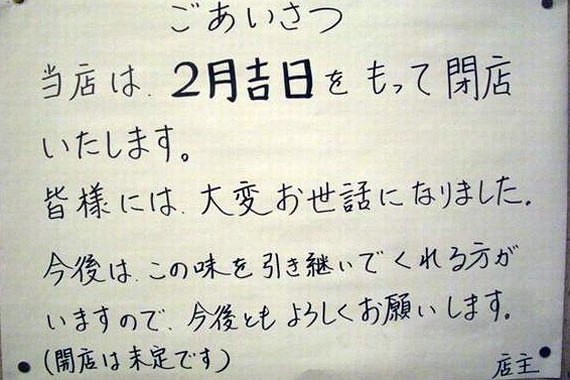 ごあいさつ
当店は、2月吉日をもって閉店
いたします。
皆様には、大変お世話になりました。
今後は、この味を引き継いでくれる方が
いますので、今後ともよろしくお願いします。
(開店は未定です)
店主